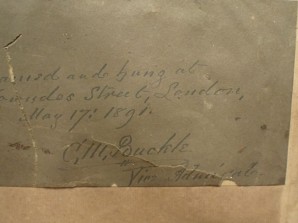 and hung at
Street, London,
May 17: 1891.
C.M. Buckle
Vice Admiral